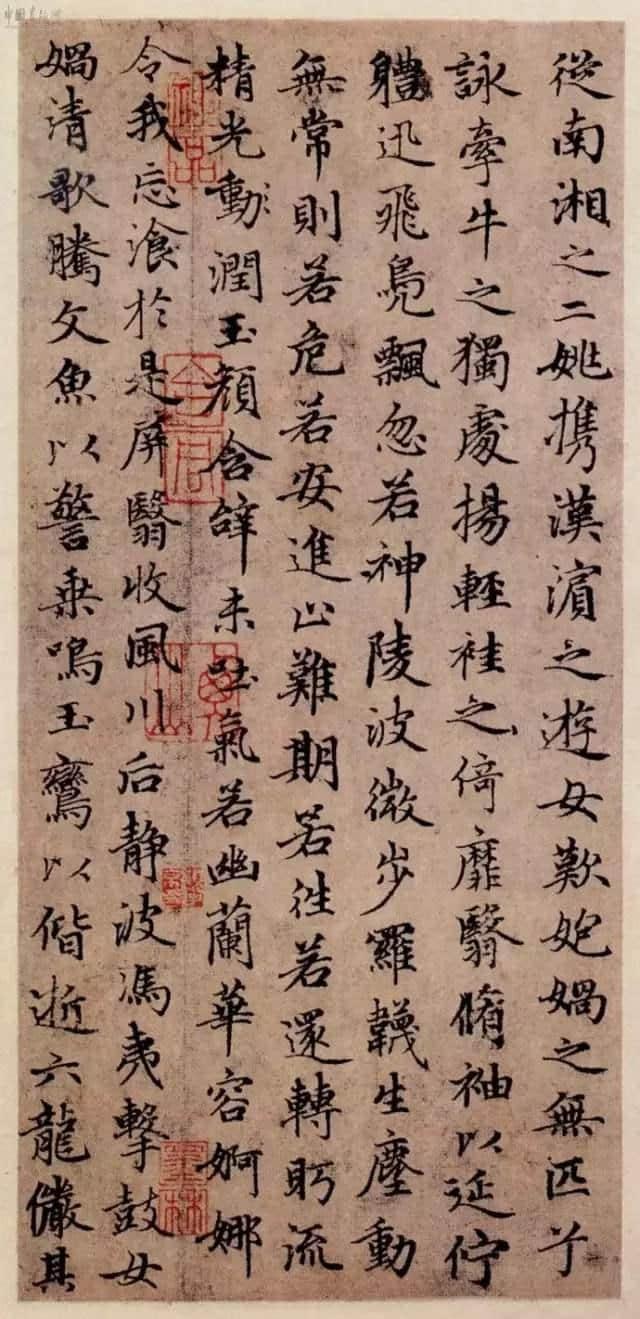 從南湘之二姚携漢濱之遊女歎媧之無匹兮
詠牽牛之獨處揚輕袿之倚靡翳脩袖以延佇
軆迅飛鳧飄忽若神陵波微步羅韈生塵動
無常則若危若安進止難期若往若還轉眄流
精光動潤玉顔含辝未吐氣若幽蘭華容婀娜
令我忘湌於是屏翳收風川后静波馮夷擊鼓女
媧清歌騰文魚以警乗鳴玉鸞以偕逝六龍儼其
神品
墨林